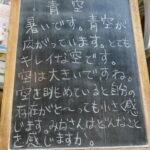 青空
暑いです。青空が
広がっています。とても
キレイな空です。
空は大きいですね。
空を眺めていると自分の
存在がと〜っても小さく感
じます。みなさんはどんなこと
を感じますか。